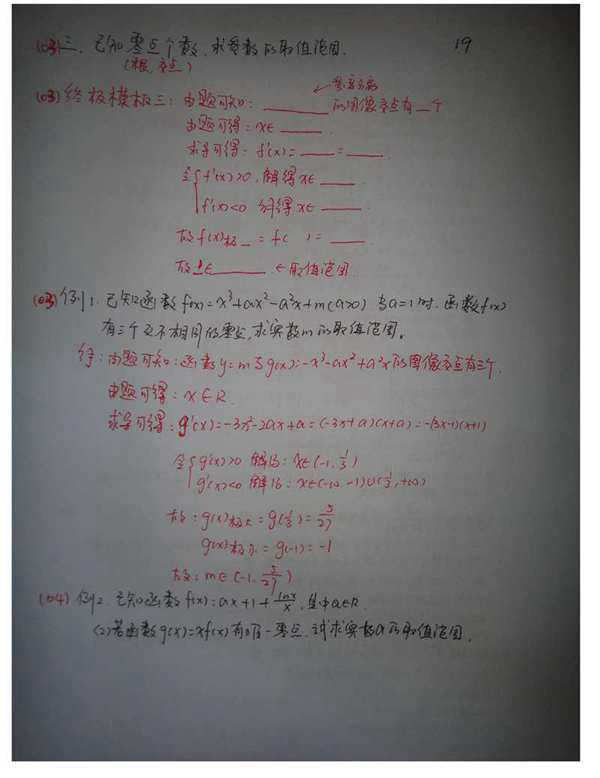 (03)三、已知零点个数，求参数的取值范围. 19
(根，交点)
(03)终极模板三：由题可知：______的图像交点有__个
由题可得：x∈_____.
求导可得：f'(x)=____=____.
令{f'(x)>0，解得x∈____.
f'(x)<0 解得x∈____.
故f(x)极_=f( )=____.
故∈______.←取值范围
(03)例1.已知函数f(x)=x³+ax²-a²x+m(a>0) 当a=1时.函数f(x)
有三个互不相同的零点,求实数m的取值范围。
由题可知:函数y=m与g(x)=-x³-ax²+a²x的图像交点有三个.
由题可得:x∈R.
求导可得:g'(x)=-3x²-2ax+a=(-3x+a)(x+a)=-(3x-1)(x+1)
令{g'(x)>0 解得:x∈(-1,1/3)
g'(x)<0 解得:x∈(-∞,-1)∪(1/3,+∞)
故:g(x)极大=g(1/3)=5/27
g(x)极小=g(-1)=-1
故:m∈(-1,5/27)
(04)例2.已知函数f(x)=ax+1+lnx/x,其中a∈R.
(2)若函数g(x)=xf(x)有唯一零点.试求实数a的取值范围.